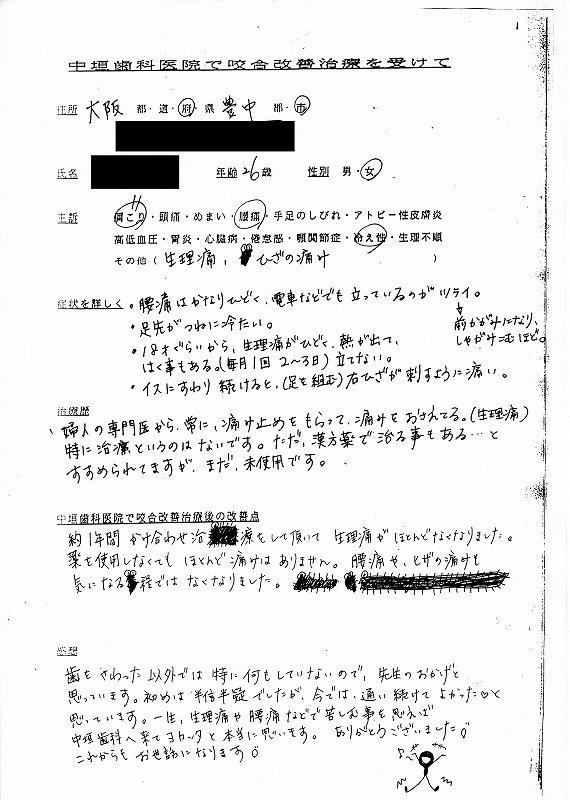 1
中垣歯科医院で咬合改善治療を受けて
住所 大阪 都・道・府・県 豊中 郡・市
氏名 年齢 26歳 性別 男・女
主訴 肩こり・頭痛・めまい・腰痛・手足のしびれ・アトピー性皮膚炎
高低血圧・胃炎・心臓病・倦怠感・顎関節症・冷え性・生理不順
その他(生理痛, ひざの痛み)
症状を詳しく ・腰痛はかなりひどく、電車などでも立っているのがツライ。
前かがみになり、
しゃがみこむほど。
・足先がつねに冷たい。
・18才ぐらいから、生理痛がひどく、熱が出て、
はく事もある。(毎月1回 2〜3日)立てない。
・イスにすわり続けると、(足を組む)右ひざが刺すように痛い。
治療歴
婦人の専門医から、常に、痛み止めをもらって、痛みをおさえてる。(生理痛)
特に治療というのはないです。ただ、漢方薬で治る事もある…と
すすめられてますが、まだ、未使用です。
中垣歯科医院で咬合改善治療後の改善点
約1年間 かけ合わせ治療をして頂いて 生理痛がほとんどなくなりました。
薬を使用しなくても ほとんど痛みはありません。腰痛や、ヒザの痛みも
気になる程ではなくなりました。
感想
歯をさわった以外では特に何もしていないので、先生のおかげと
思っています。初めは半信半疑でしたが、今では、通い続けてよかった♡と
思っています。一生、生理痛や腰痛などで苦しむ事を思えば
中垣歯科へ来てヨカッタと本当に思います。ありがとうございました
これからもお世話になります